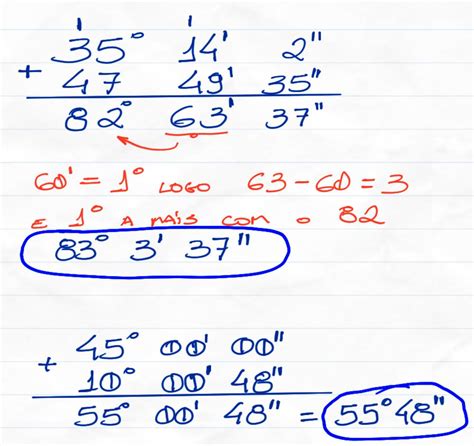 1 1
35° 14' 2"
+ 47 49' 35"
82° 63' 37"
60' = 1° LOGO 63-60 = 3
E 1° A MAIS COM O 82
83° 3' 37"
45° 00' 00"
+ 10° 00' 48"
55° 00' 48" = 55° 48"